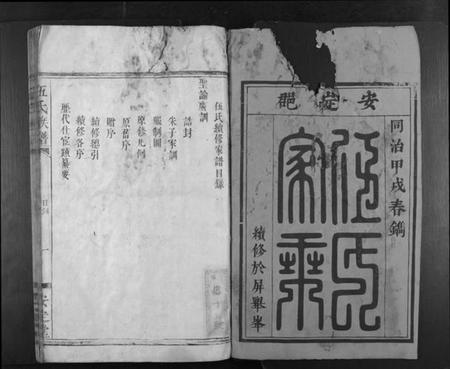 安定郡
同治甲戌春鐫
伍氏
家乘
續修於屏舉峯
伍氏續修家譜目錄
聖諭廣訓
誥封
朱子家訓
服制圖
原修凡例
原舊序
贈序
續修總引
續修各序
歷代仕宦蹟纂要
伍氏族譜
目錄
一